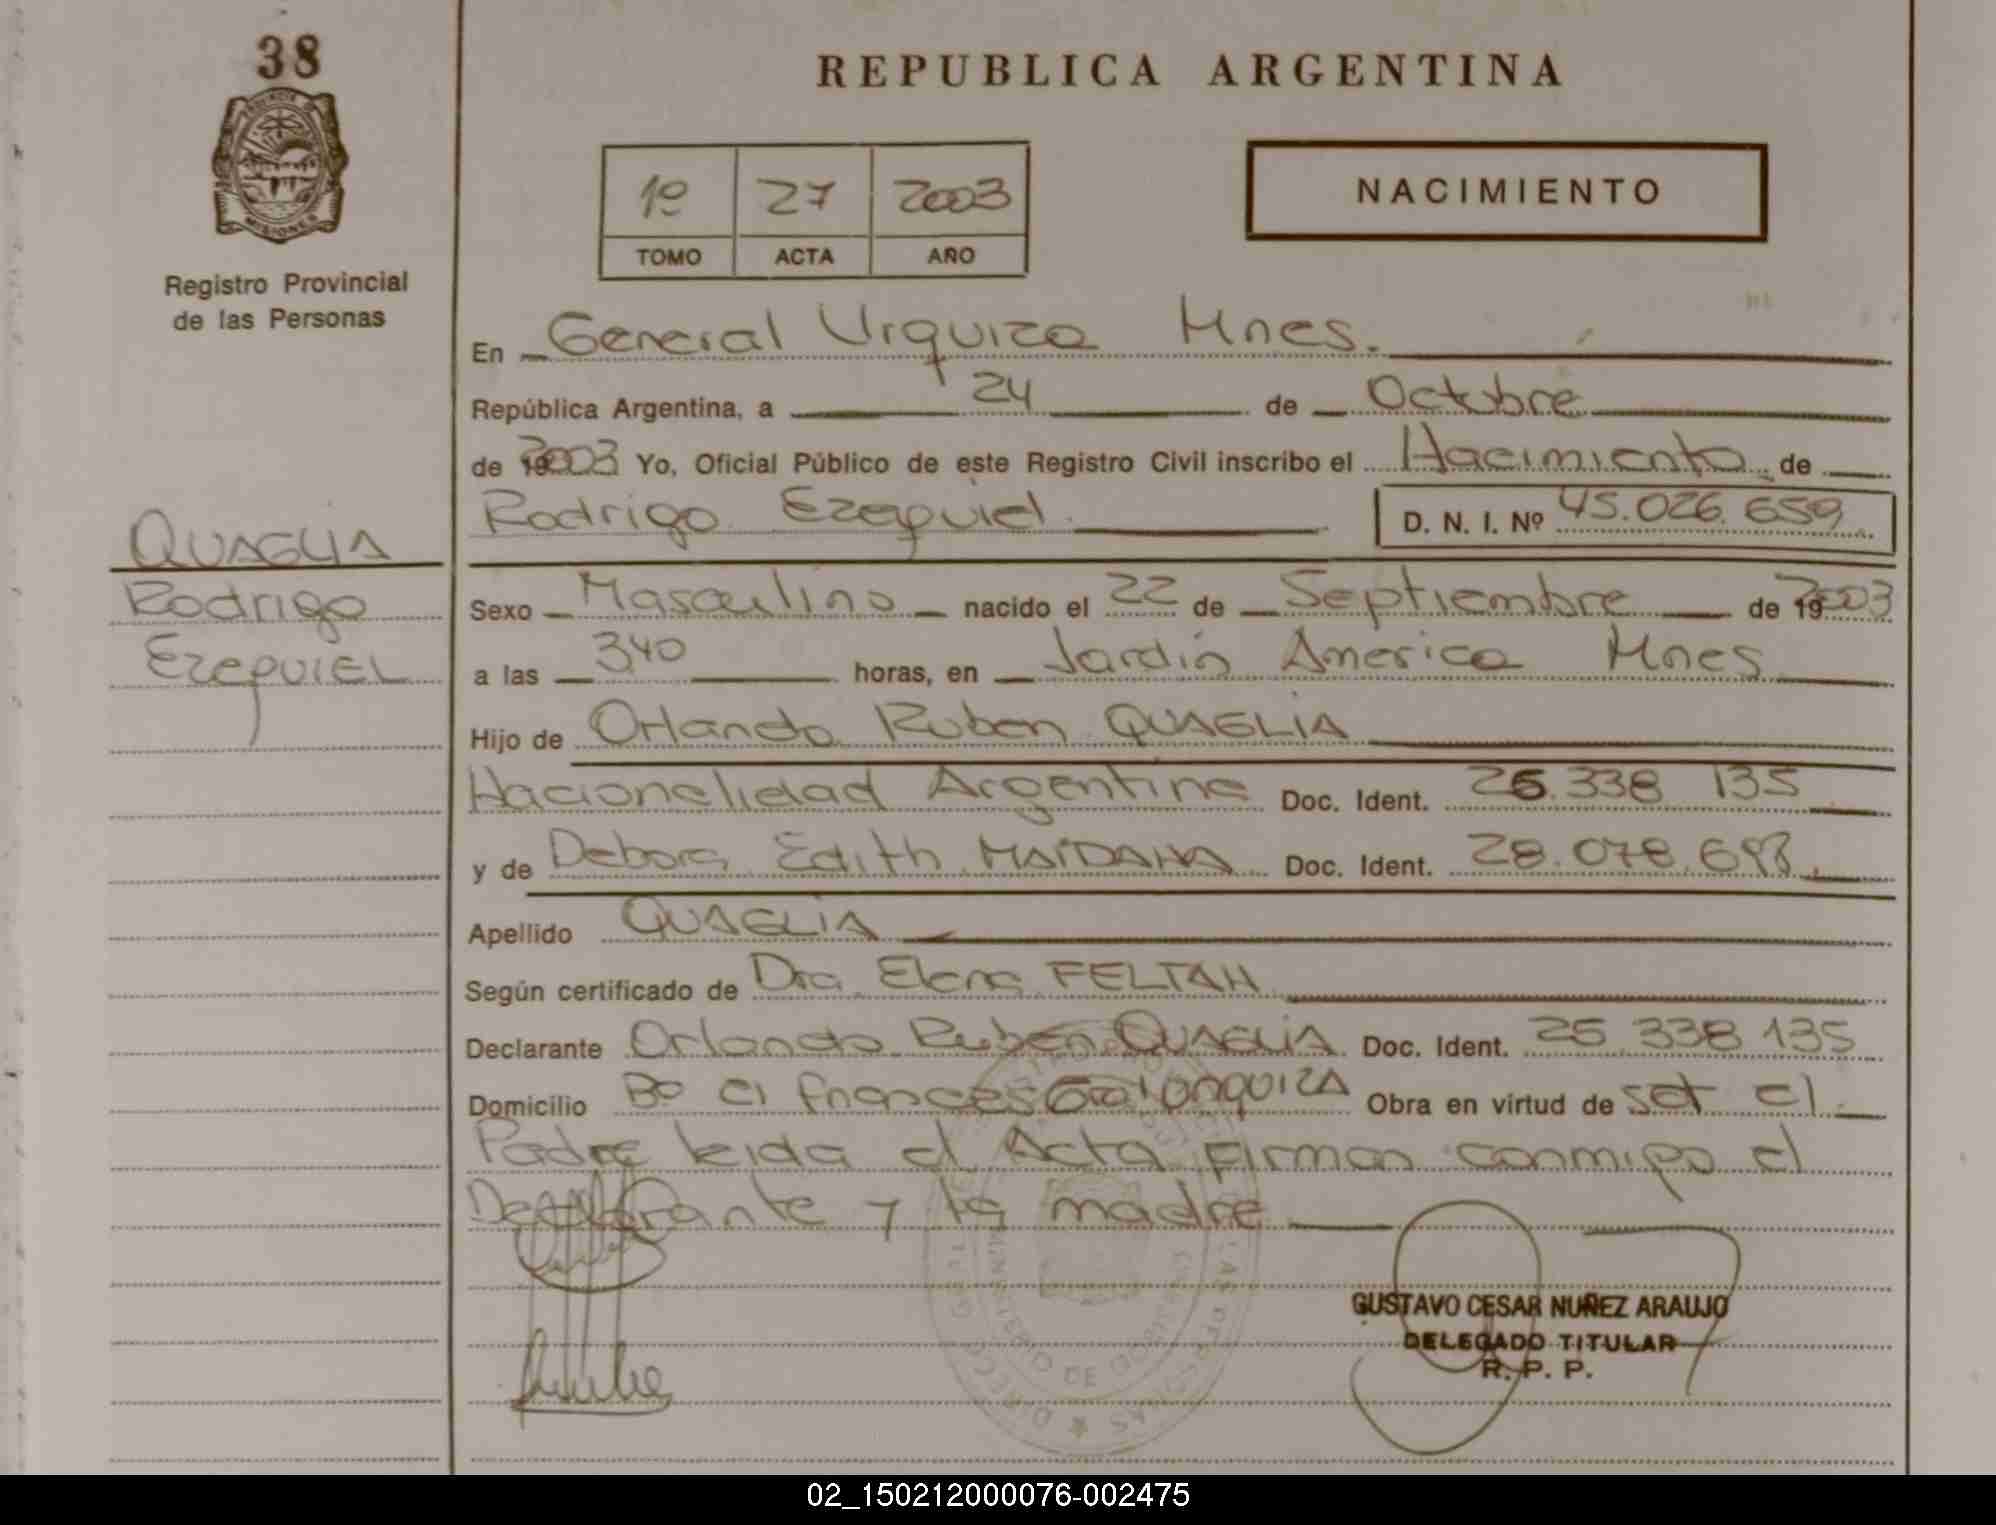 38
PROVINCIA DE
MISIONES
Registro Provincial
de las Personas
REPUBLICA ARGENTINA
1º 27 2003
TOMO ACTA AÑO
NACIMIENTO
En General Urquiza Mnes.
República Argentina, a 24 de Octubre
de 2003 Yo, Oficial Público de este Registro Civil inscribo el Nacimiento de
Rodrigo Ezequiel D. N. I. Nº 45.026.659
QUAGLIA
Rodrigo
EzEquiEL
Sexo Masculino nacido el 22 de Septiembre de 2003
a las 3,40 horas, en Jardín America Mnes
Hijo de Orlando Ruben QUAGLIA
Nacionalidad Argentina Doc. Ident. 338 135
y de Debora Edith MAIDANA Doc. Ident. 28.078.
Apellido QUAGLIA
Según certificado de Dra Elena FELTAN
Declarante Orlando Ruben QUAGLIA Doc. Ident. 25 338 135
Domicilio Bo el frances Gral Urquiza Obra en virtud de ser el
Padre leida el Acta firman conmigo el
Declarante y la madre
GUSTAVO CESAR NUÑEZ ARAUJO
DELEGADO TITULAR
R. P. P.
02_150212000076-002475